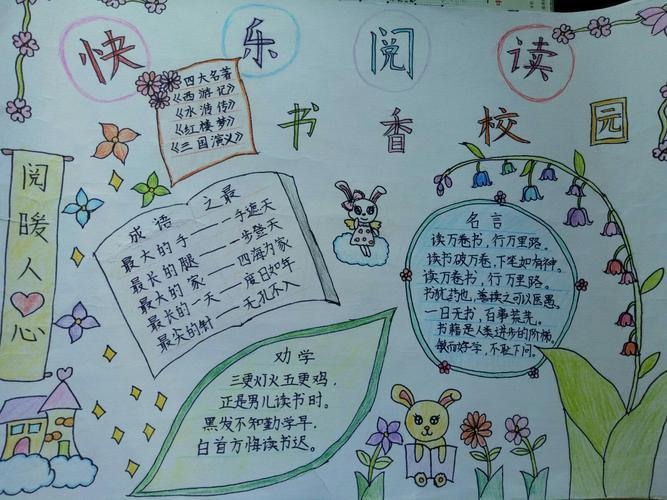 快乐阅读
书香校园
四大名著
《西游记》
《水浒传》
《红楼梦》
《三国演义》
阅暖人心
成语之最
最大的手——手遮天
最长的腿——一步登天
最大的家——四海为家
最长的一天——度日如年
最尖的针——无孔不入
名言
读万卷书，行万里路。
读书破万卷，下笔如有神。
读万卷书，行万里路。
书犹药也，善读之可以医愚。
一日无书，百事荒芜。
书籍是人类进步的阶梯。
敏而好学，不耻下问。
劝学
三更灯火五更鸡，
正是男儿读书时。
黑发不知勤学早，
白首方悔读书迟。